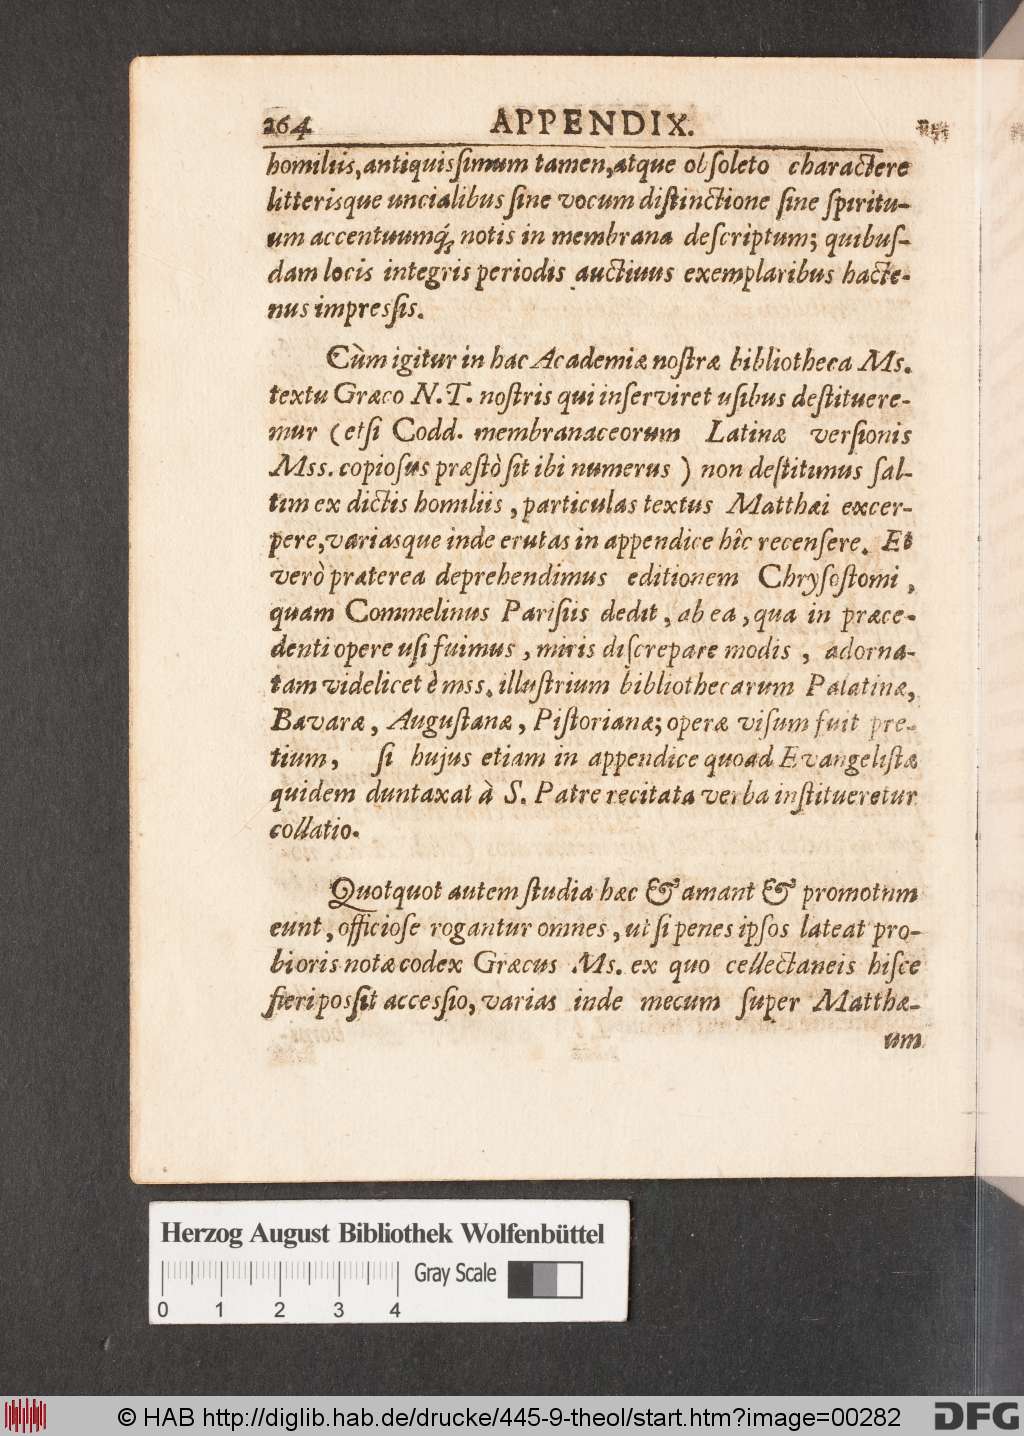 264 APPENDIX.
homiliis, antiquissimum tamen, atque obsoleto charactere
litterisque uncialibus sine vocum distinctione sine spiritu-
um accentuumq́; notis in membrana descriptum; quibus-
dam locis integris periodis auctiuus exemplaribus hacte-
nus impressis.
Cùm igitur in hac Academiæ nostræ bibliotheca Ms.
textu Græco N. T. nostris qui inserviret usibus destituere-
mur (etsi Codd. membranaceorum Latinæ versionis
Mss. copiosus præstò sit ibi numerus) non destitimus sal-
tim ex dictis homiliis, particulas textus Matthæi excer-
pere, variasque inde erutas in appendice hîc recensere. Et
verò præterea deprehendimus editionem Chrysostomi,
quam Commelinus Parisiis dedit, ab ea, qua in præce-
denti opere usi fuimus, miris discrepare modis, adorna-
tam videlicet è mss. illustrium bibliothecarum Palatinæ,
Bavaræ, Augustanæ, Pistorianæ; operæ visum fuit pre-
tium, si hujus etiam in appendice quoad Evangelistæ
quidem duntaxat à S. Patre recitata verba institueretur
collatio.
Quotquot autem studia hæc & amant & promotum
eunt, officiose rogantur omnes, ut si penes ipsos lateat pro-
bioris notæ codex Græcus Ms. ex quo cellectaneis hisce
fieri possit accessio, varias inde mecum super Matthæ-
um
Herzog August Bibliothek Wolfenbüttel
Gray Scale
0 1 2 3 4
© HAB http://diglib.hab.de/drucke/445-9-theol/start.htm?image=00282
DFG